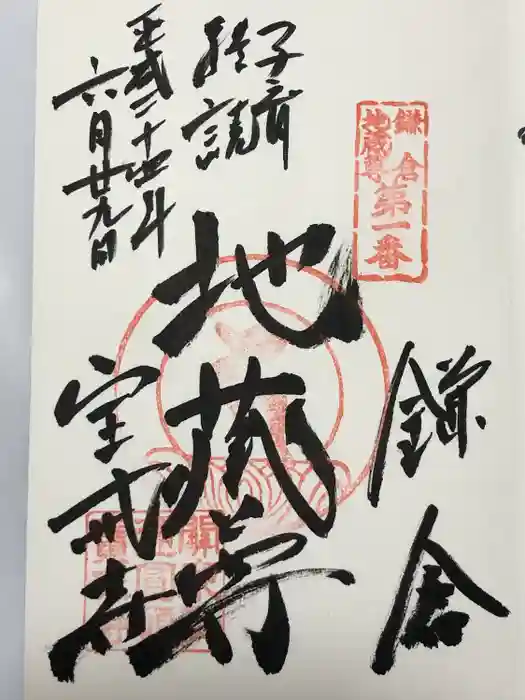 鎌倉
地蔵尊
第一番
鎌倉
子育
経読
地蔵尊
平成二十四年
六月廿九日
宝戒寺